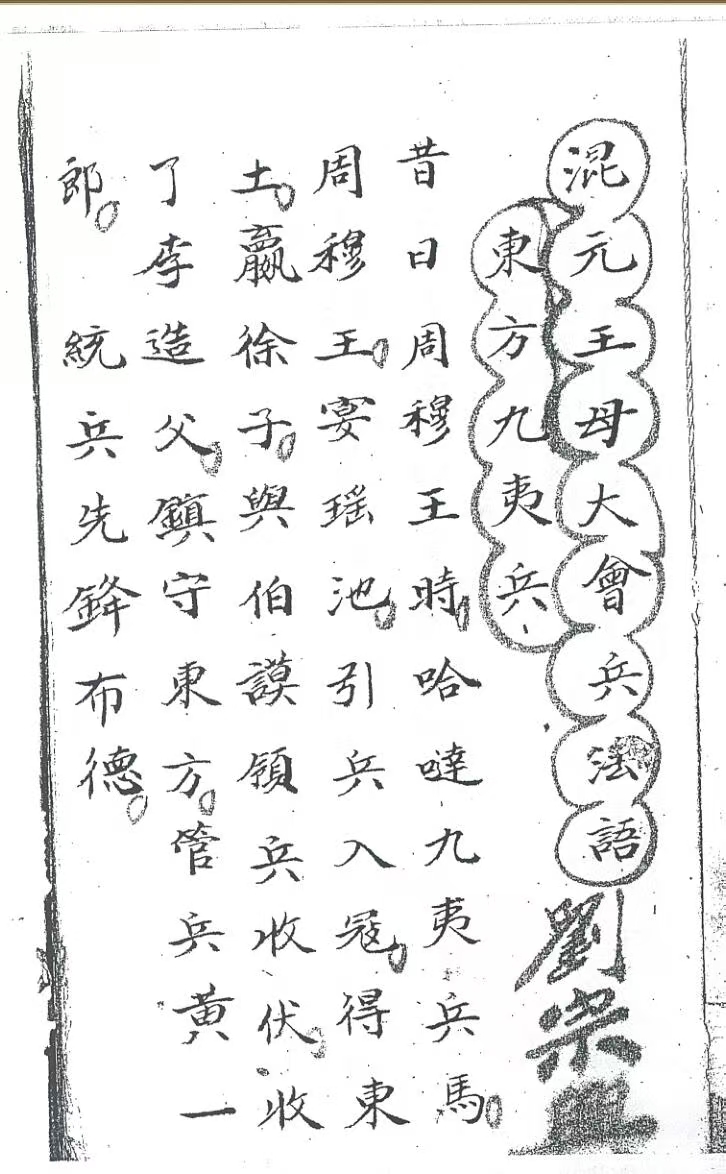 混元王母大會兵法語
劉宗
東方九夷兵
昔日周穆王時哈噠九夷兵馬
周穆王宴瑤池引兵入冦得東
土贏徐子與伯謨領兵收伏收
了李造父鎮守東方管兵黃一
郎 統兵先鋒布德